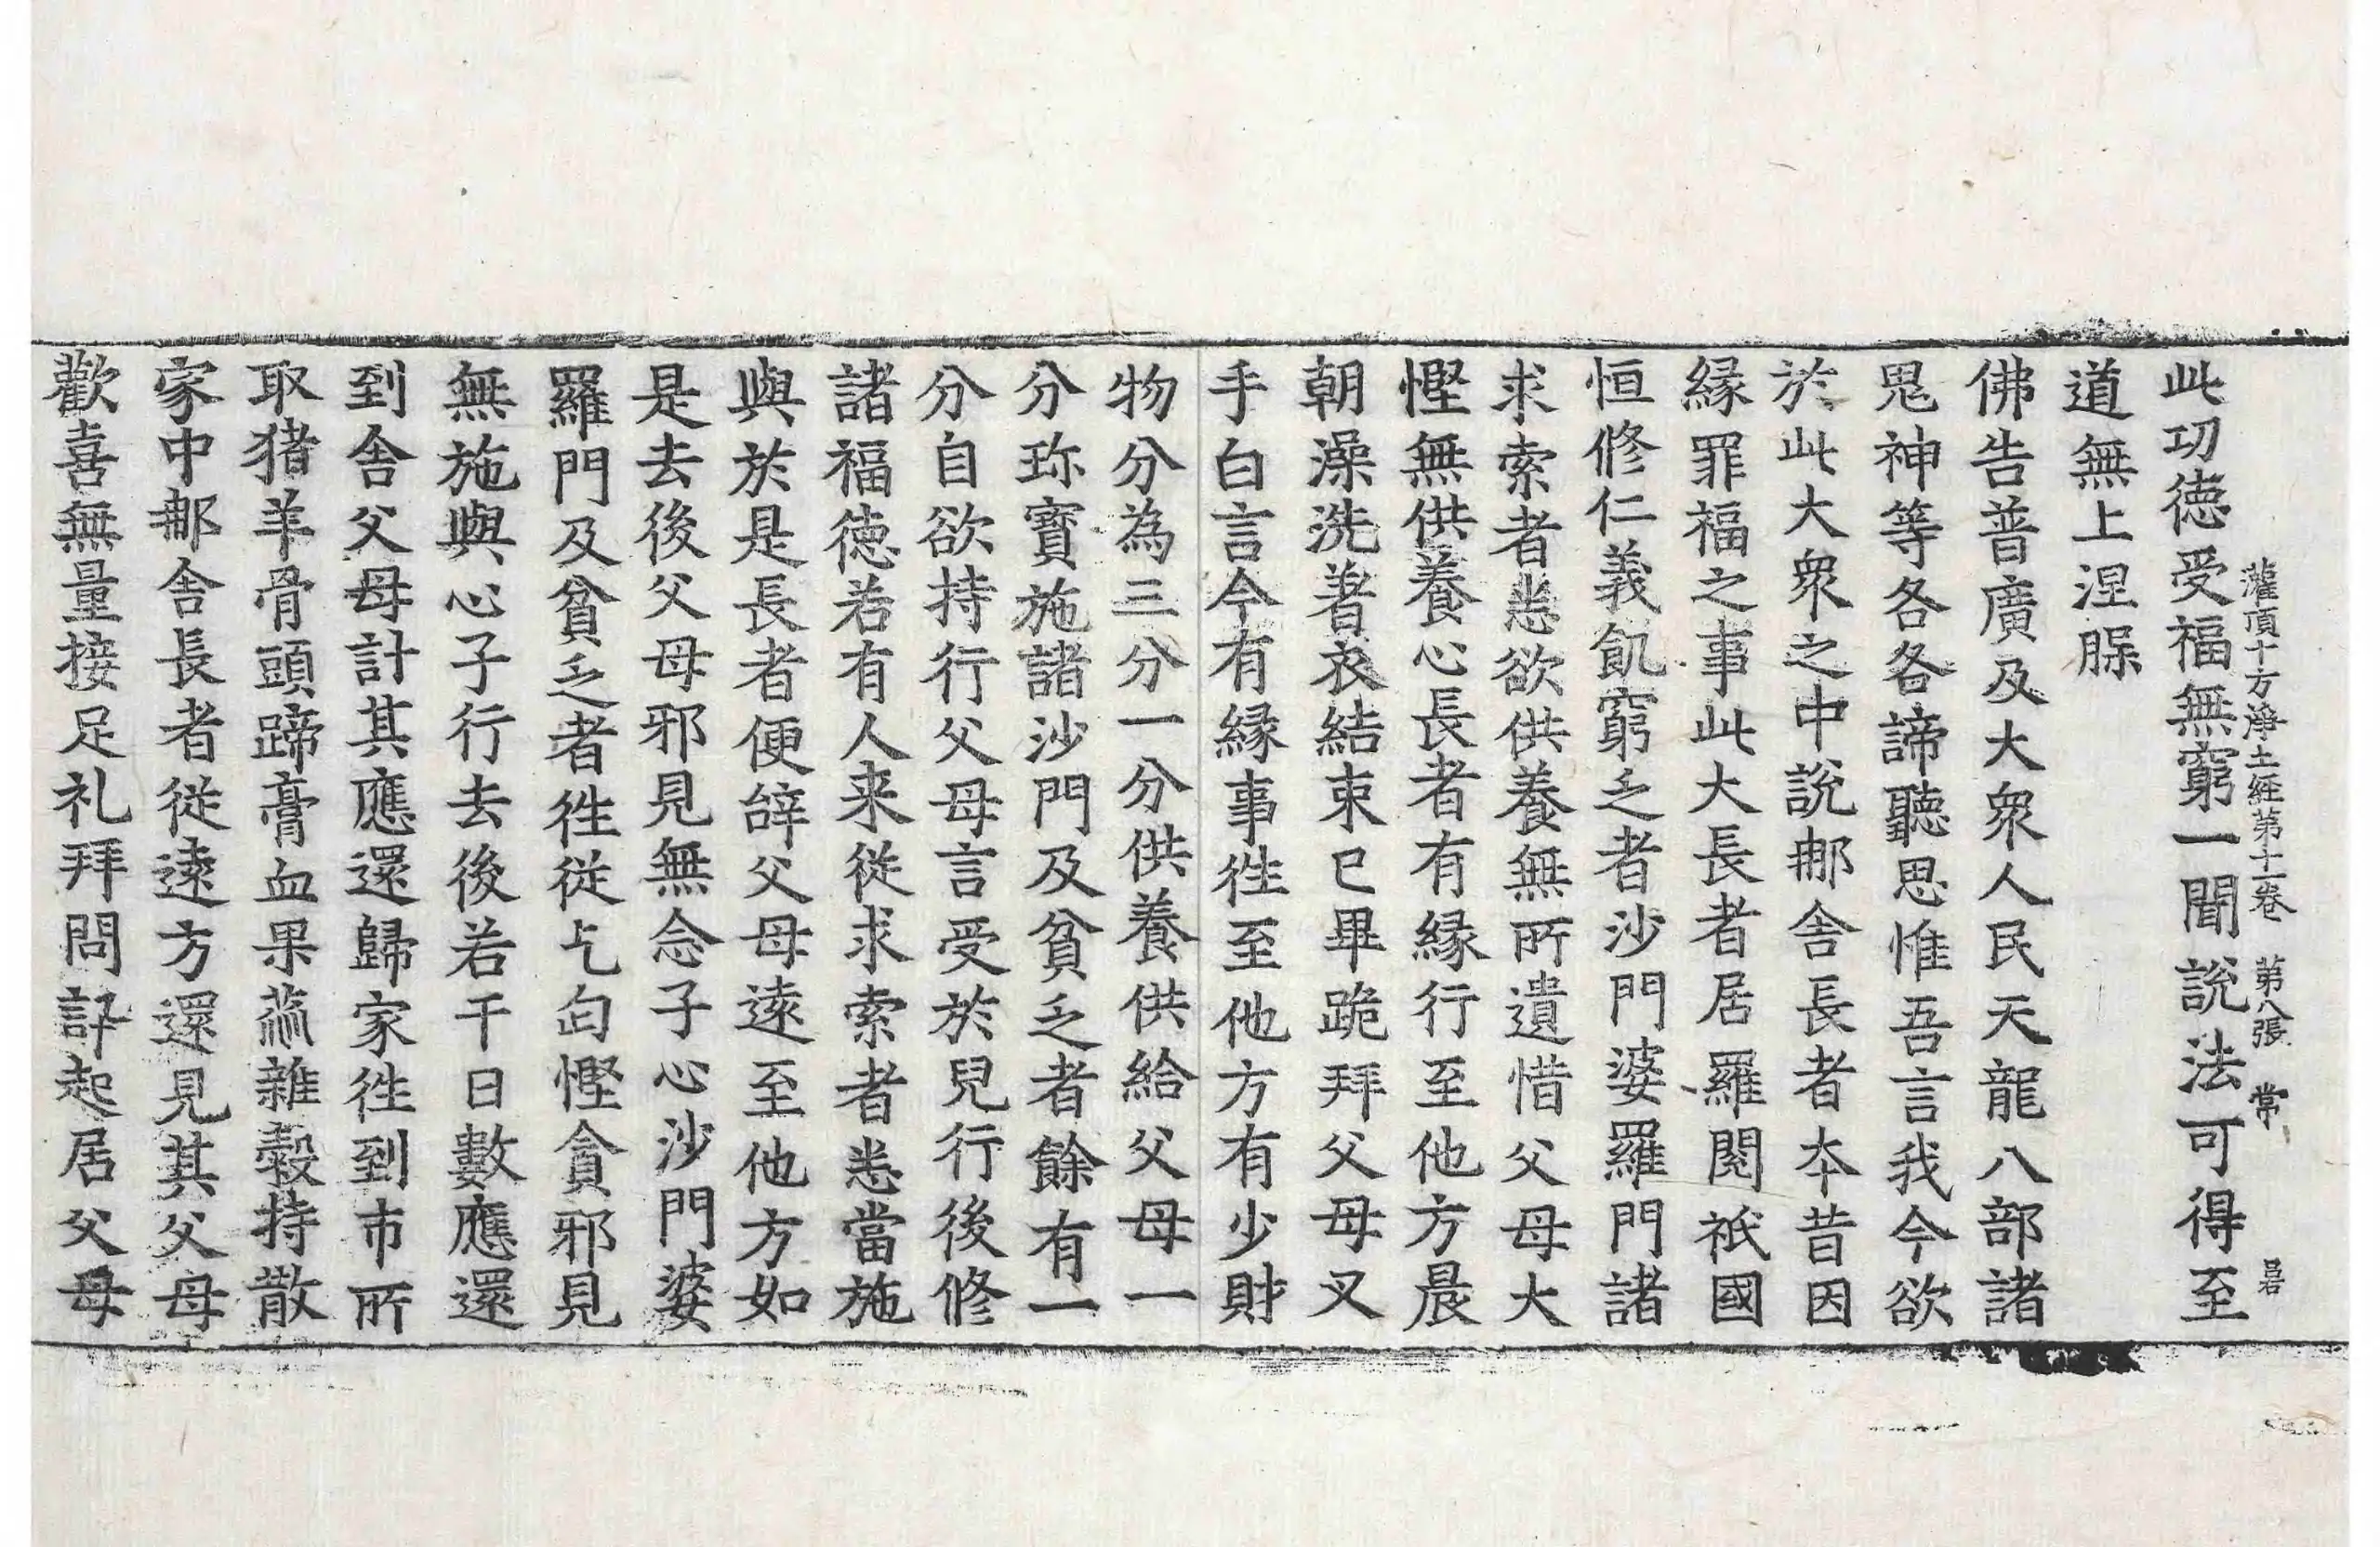 灌頂十方淨土經第十一卷　第八張　常
此功徳受福無窮一聞說法可得至
道無上涅脲
佛告普廣及大衆人民天龍八部諸
鬼神等各各諦聽思惟吾言我今欲
於此大衆之中說那舍長者夲昔因
縁罪福之事此大長者居羅閱祇國
恒修仁義飢窮乏者沙門婆羅門諸
求索者悉欲供養無所遺惜父母大
慳無供養心長者有縁行至他方晨
朝澡洗著衣結束已畢跪拜父母叉
手白言今有縁事徃至他方有少財
物分為三分一分供養供給父母一
分珎寳施諸沙門及貧乏者餘有一
分自欲持行父母言受於兒行後修
諸福徳若有人来從求索者悉當施
與於是長者便辤父母逺至他方如
是去後父母邪見無念子心沙門婆
羅門及貧乏者徃從乞匃慳貪邪見
無施與心子行去後若干日數應還
到舍父母計其應還歸家徃到市所
取猪羊骨頭蹄膏血果蓏雜糓持散
家中那舍長者從逺方還見其父母
歡喜無量接足礼拜問訊起居父母